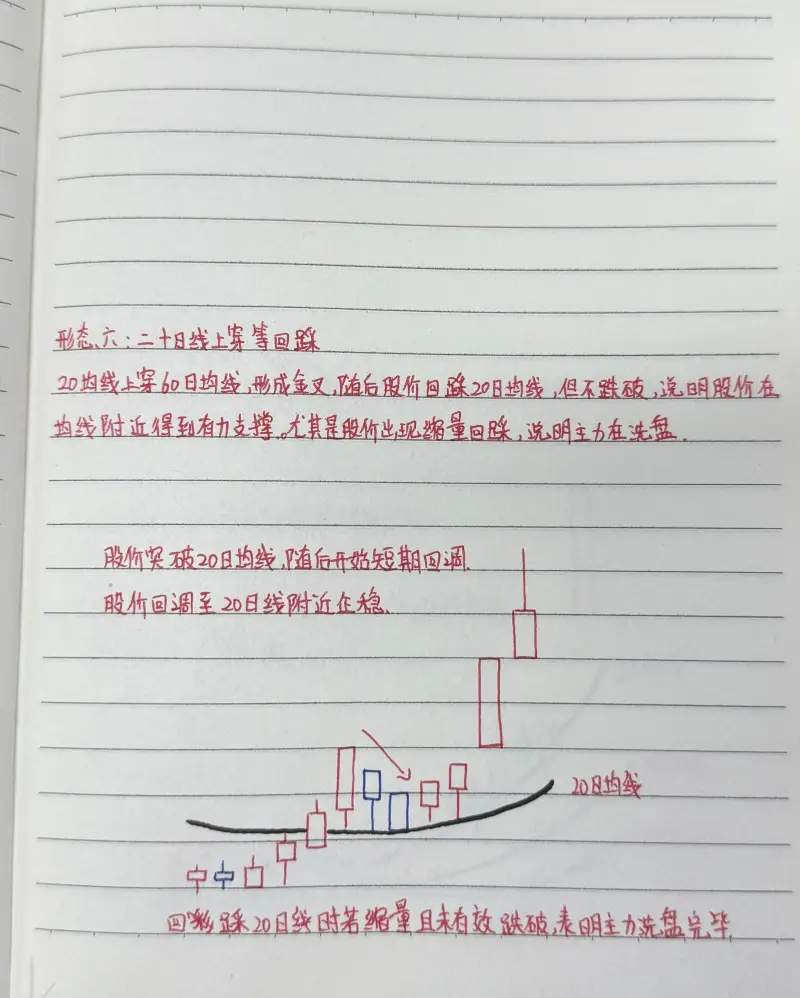 形态六:二十日线上穿等回踩
20均线上穿60日均线,形成金叉,随后股价回踩20日均线,但不跌破,说明股价在
均线附近得到有力支撑。尤其是股价出现缩量回踩,说明主力在洗盘.
股价突破20日均线,随后开始短期回调.
股价回调至20日线附近企稳.
20日均线
回踩20日线时若缩量且未有效跌破,表明主力洗盘完毕